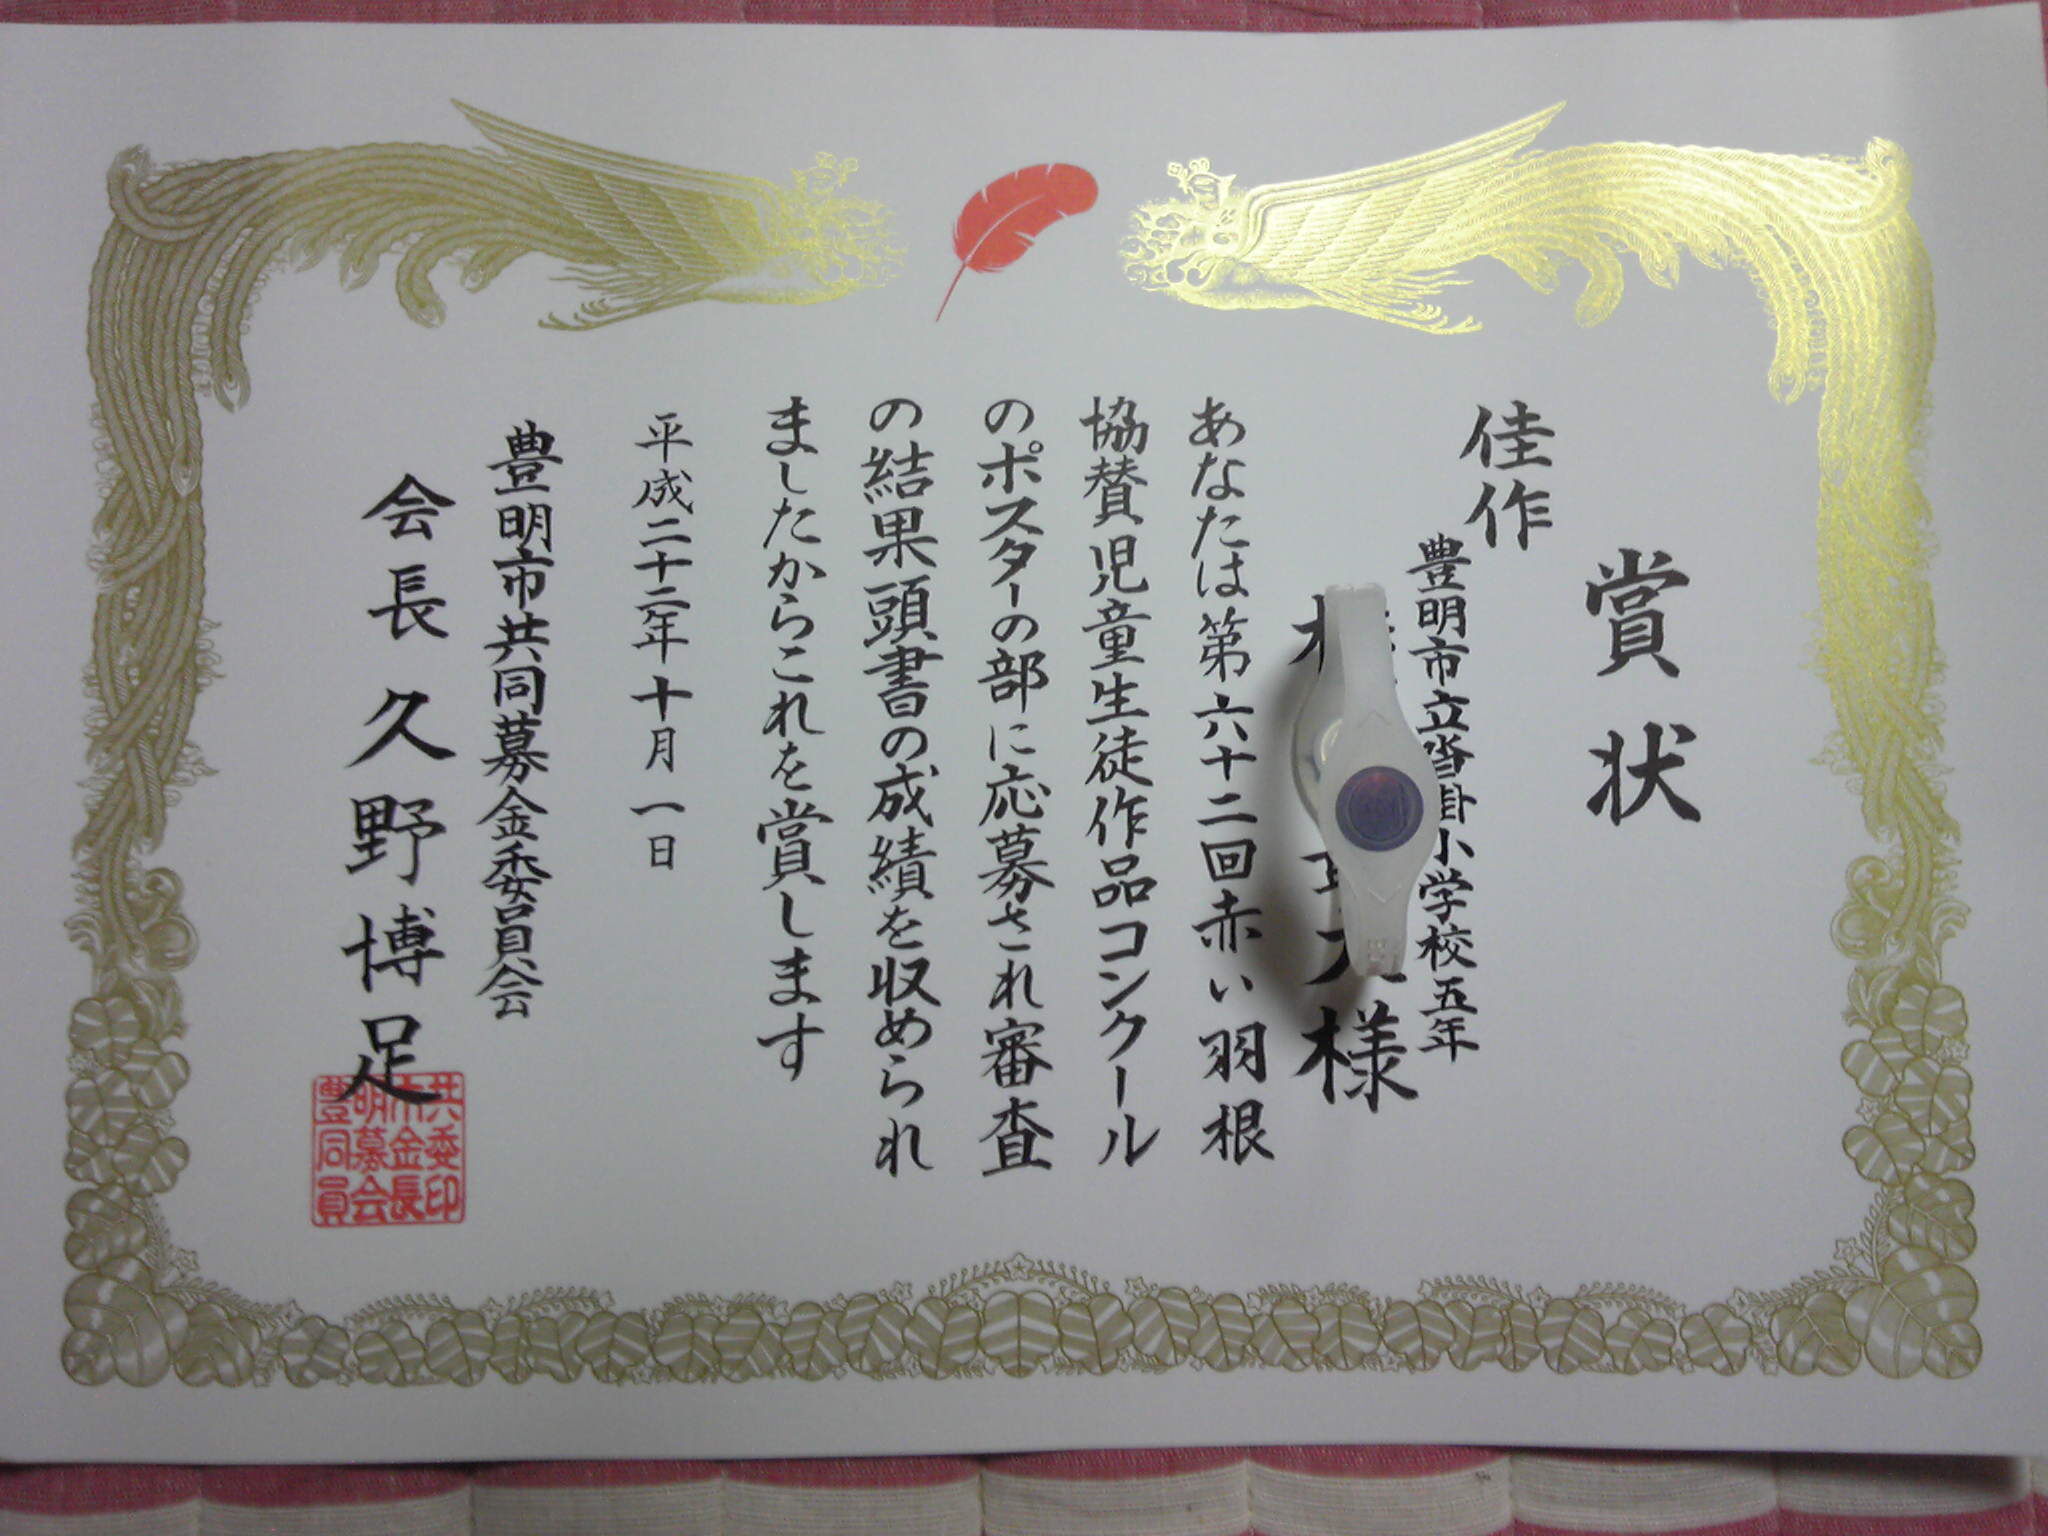 賞状
佳作
豊明市立沓掛小学校五年
様
あなたは第六十二回赤い羽根
協賛児童生徒作品コンクール
のポスターの部に応募され審査
の結果頭書の成績を収められ
ましたからこれを賞します
平成二十二年十月一日
豊明市共同募金委員会
会長久野博足
共委印
市金長
明募会
豊同員